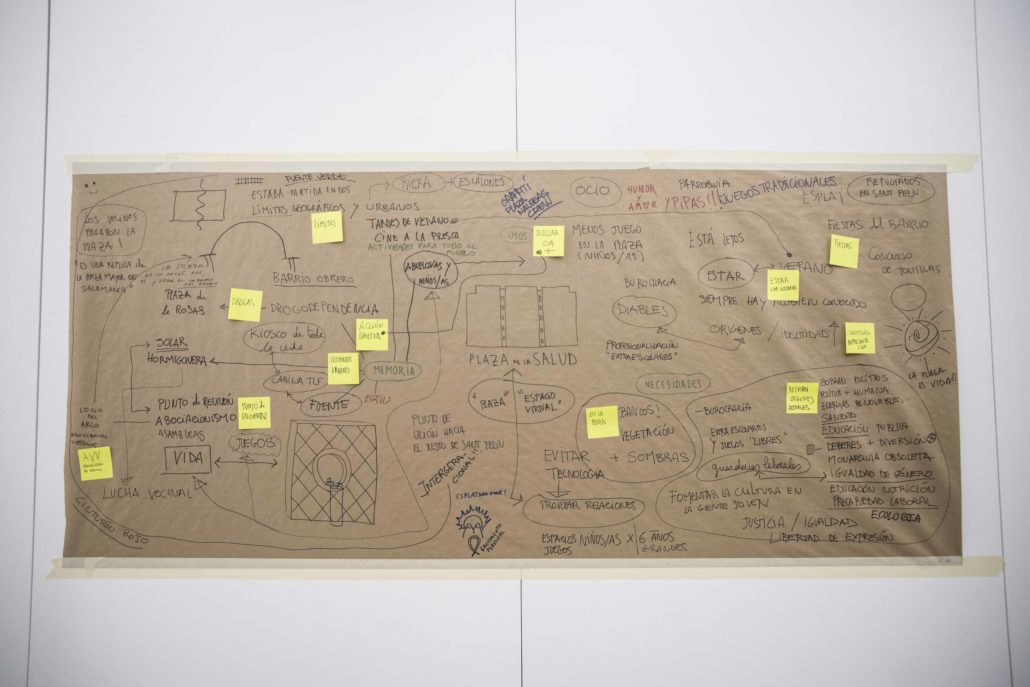 PUENTE VERDE
ESTABA PARTIDA EN DOS
LÍMITES GEOGRÁFICOS Y URBANOS
LÍMITES
LOS VECINOS
PAGARON LA
PLAZA!
ES UNA RÉPLICA DE
LA PLAZA MAYOR DE
SALAMANCA
LA PLAZA
BARRIO OBRERO
PLAZA de
la ROSAS
DROGAS
DROGODEPENDENCIA
KIOSCO de toda
la vida
ACCIÓN
DIRECTA
SOLAR
HORMIGONERA
CABINA TLF
FUENTE
MEMORIA
PUNTO de REUNIÓN
ASOCIACIONISMO
ASAMBLEAS
PUNTO de
ENCUENTRO
LOGO
DEL
ARCO
ASOCIACIÓN
AVV
VIDA
JUEGOS
LUCHA VECINAL
CINTURÓN ROJO
+ ESCALONES
TARDES DE VERANO
CINE A LA FRESCA
ACTIVIDADES PARA TODO EL
PUEBLO
ABUELOS/AS Y
NIÑOS/AS
GRAFFITI
PLAZA
USOS
MENOS JUEGO
EN LA PLAZA
(NIÑOS/AS)
OCIO
HUMOR
Y AMOR
Y PIPAS!!
PARROQUIA
JUEGOS TRADICIONALES
ESPLAI
REFUGIADOS
EN SANT FELIU
FIESTAS del BARRIO
FIESTAS
CONCURSO
DE TORTILLAS
ESTÁ LEJOS
ESTAR
VERANO
ESTAR
SIEMPRE HAY ALGUIEN CONOCIDO
BUROCRACIA
DIABLES
PROFESIONALIZACIÓN
"EXTRAESCOLARES"
ORÍGENES
IDENTIDAD
LA PLAÇA
ES VIDA!!
PLAZA DE LA SALUD
"PLAZA"
"ESPACIO
VIRTUAL"
PUNTO DE
UNIÓN HACIA
EL RESTO DE SANT FELIU
INTERGENERACIONAL!!!
NECESIDADES
BANCOS!
VEGETACIÓN
+ SOMBRAS
EVITAR
TECNOLOGÍA
TROVOCAR RELACIONES
ESPACIOS NIÑOS/AS X 6 AÑOS
JUEGOS
GRANDES
- BUROCRACIA
EXTRAESCOLARES
Y JUEGOS "LIBRES"
guarderías laborales
FOMENTAR LA CULTURA EN
LA GENTE JOVEN
JUSTICIA / IGUALDAD
LIBERTAD DE EXPRESIÓN
POLÍTICOS
POLÍTICA + HUMANA
ENERGÍAS RENOVABLES
SANIDAD
EDUCACIÓN PÚBLICA
- DEBERES + DIVERSIÓN
MONARQUÍA OBSOLETA
IGUALDAD DE GÉNERO
EDUCACIÓN NUTRICIÓN
PRECARIEDAD LABORAL
ECOLOGÍA